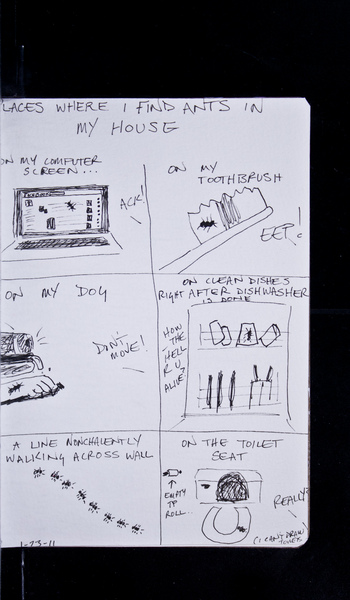 LACES WHERE I FIND ANTS IN
MY HOUSE
ON MY COMPUTER
SCREEN...
ACK!
ON MY
TOOTHBRUSH
EEP!
ON MY DOG
DON'T
MOVE!
ON CLEAN DISHES
RIGHT AFTER DISHWASHER
IS DONE
HOW
THE
HELL
R U
ALIVE?
A LINE NONCHALENTLY
WALKING ACROSS WALL
1-23-11
ON THE TOILET
SEAT
EMPTY
TP
ROLL...
REALLY?
(I CAN'T DRAW
TOILETS)